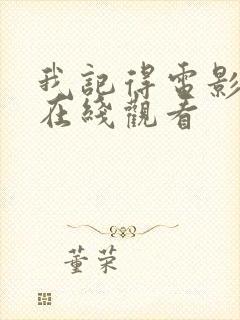 我記得電影
在綫觀看
董荣